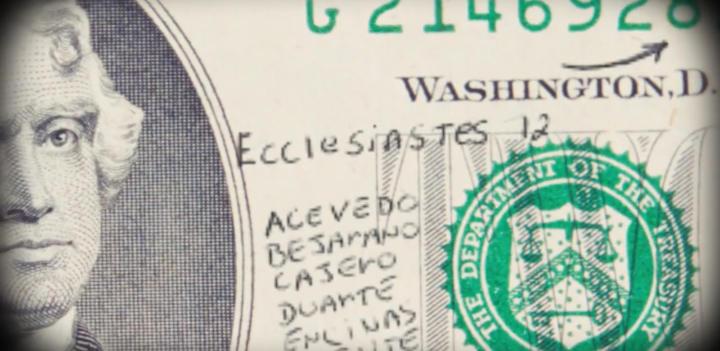 G 2146928
WASHINGTON, D.
Ecclesiastes 12
ACEVEDO
BEJARANO
CAJERO
DUARTE
ENCINAS
THE DEPARTMENT OF THE TREASURY